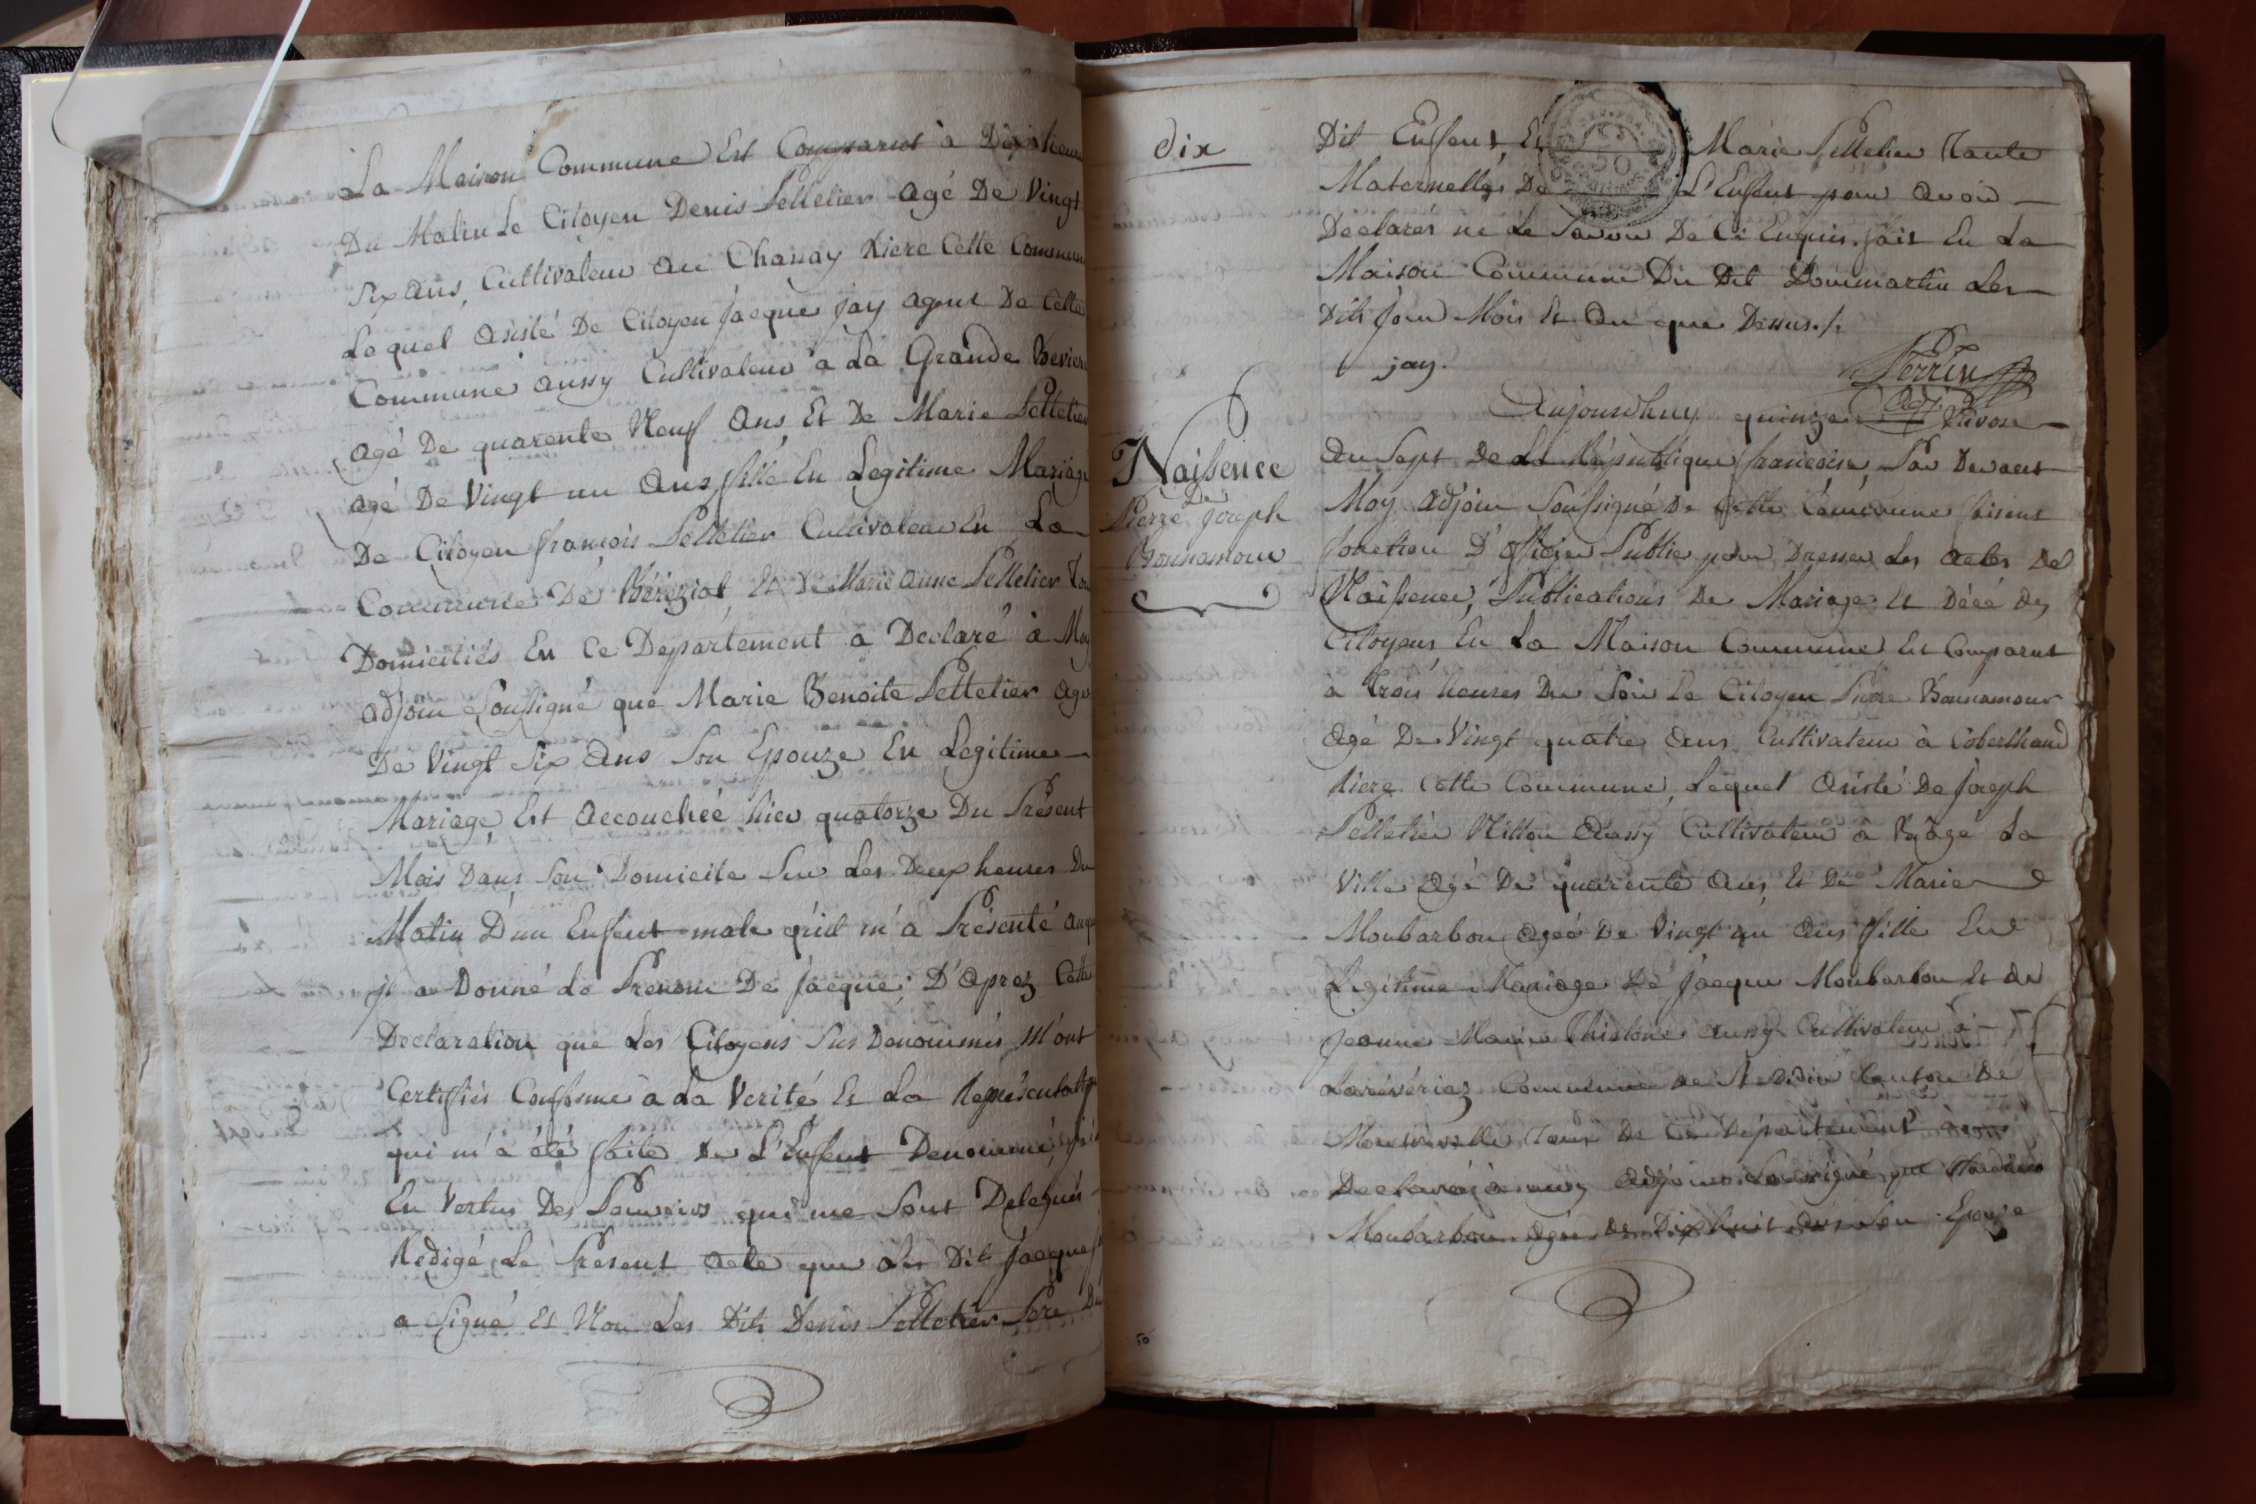 La Maison Commune Est Comparut à Dix heure
Du Matin Le Citoyen Denis Pelletier agé De Vingt
Six ans, Cultivateur au Chanay Riere Cette Commune
Lequel assisté De Citoyen Jacque Jay agent De Cette
Commune aussy Cultivateur a La Grande Beviere
agé De quarente Neuf ans Et De Marie Pelletier
agé De Vingt un ans fille En Legitime Mariage
De Citoyen françois Pelletier Cultivateur En La
Commune De Béréziat Et De Marie anne Pelletier Tou
Domiciliés En Ce Departement a Declaré à Moy
adjoin Soussigné que Marie Benoite Pelletier agé
De Vingt Six ans Son Epouze En Legitime
Mariage Est accouchée hier quatorze Du Présent
Mois Dans Son Domicile Sur Les Deux heures Du
Matin D'un Enfent male qu'il m'a Présenté auq
jl a Donné Le Prenom De Jacque; D'aprez Cette
Declaration que Les Citoyens Sus Denommés M'ont
Certifiés Conforme a La Verité Et La Représentat
qui m'a été faite De L'Enfent Denommé, j'ai
En Vertus Des Pouvoirs qui me Sont Delegués
Redigé Le Présent acte que Les Dit Jacque
a Signé Et Non Les Dits Denis Pelletier Pere Du
dix
Dit Enfent Et Marie Pelletier Tante
Maternelle De L'Enfent pour avoir
Déclarés ne Le Savoir De Ce Enquis. fait En La
Maison Commune Du Dit Dommartin Les
Dits Jour Mois Et an que Dessus./.
jay.
Perrin
adj.
Naissence
De
Pierre Joseph
Bonnamour
Aujourdhuy quinze
an Sept De La République françoise, Par Devant
Moy adjoin Soussigné De Cette Commune faisent
fonction D'officier Public pour Dresser Les actes De
Naissence, Publications De Mariage Et Décé des
Citoyens En La Maison Commune Est Comparut
à Trois heures Du Soir Le Citoyen Pierre Bonnamour
agé De Vingt quatre ans Cultivateur à
Riere Cette Commune, Lequel assisté De Joseph
Pelletier Nitton aussy Cultivateur a Bâgé La
Ville agé De quarente ans Et De Marie
Monbarbon agée De Vingt un ans fille En
Legitime Mariage De Jacque Monbarbon Et de
Jeanne Marie aussy Cultivateur à
Commune de St Didier Canton De
Montrevelle Tous De Ce Departement a
Declaré à moy adjoin Soussigné que
Monbarbon agée de Dix huit ans Son Epouze
50